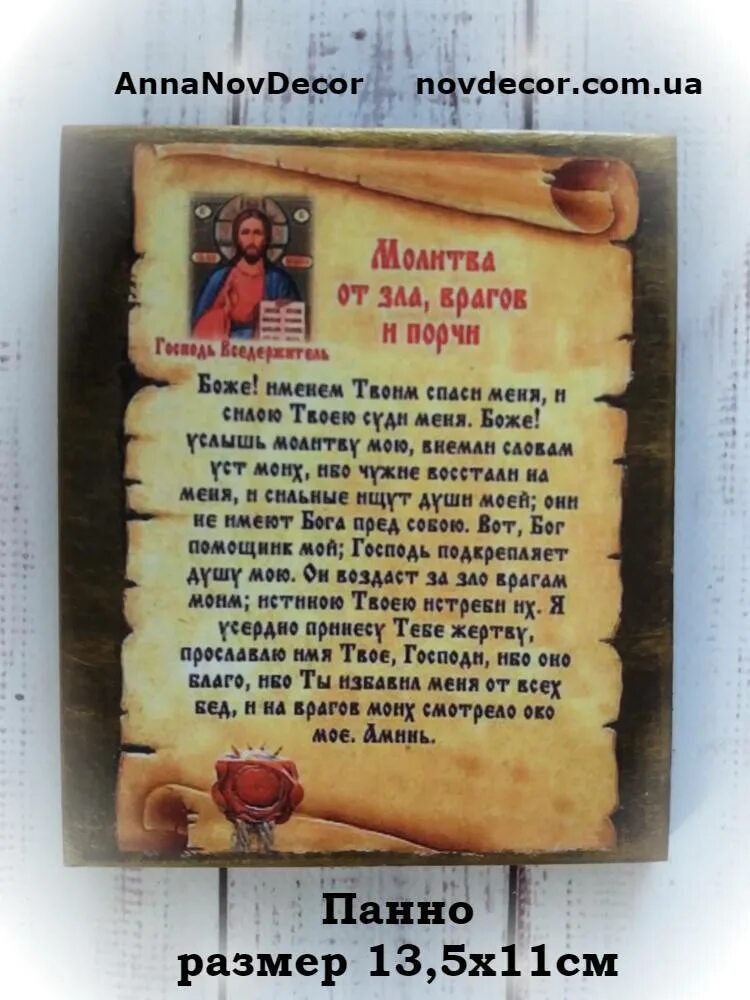 AnnaNovDecor novdecor.com.ua
Молитва
от зла, врагов
и порчи
Господь Вседержитель
Боже! именем Твоим спаси меня, и
силою Твоею суди меня. Боже!
услышь молитву мою, внемли словам
уст моих, ибо чужие восстали на
меня, и сильные ищут души моей; они
не имеют Бога пред собою. Вот, Бог
помощник мой; Господь подкрепляет
душу мою. Он воздаст за зло врагам
моим; истиною Твоею истреби их. Я
усердно принесу Тебе жертву,
прославлю имя Твое, Господи, ибо оно
благо, ибо Ты избавил меня от всех
бед, и на врагов моих смотрело око
мое. Аминь.
Панно
размер 13,5х11см